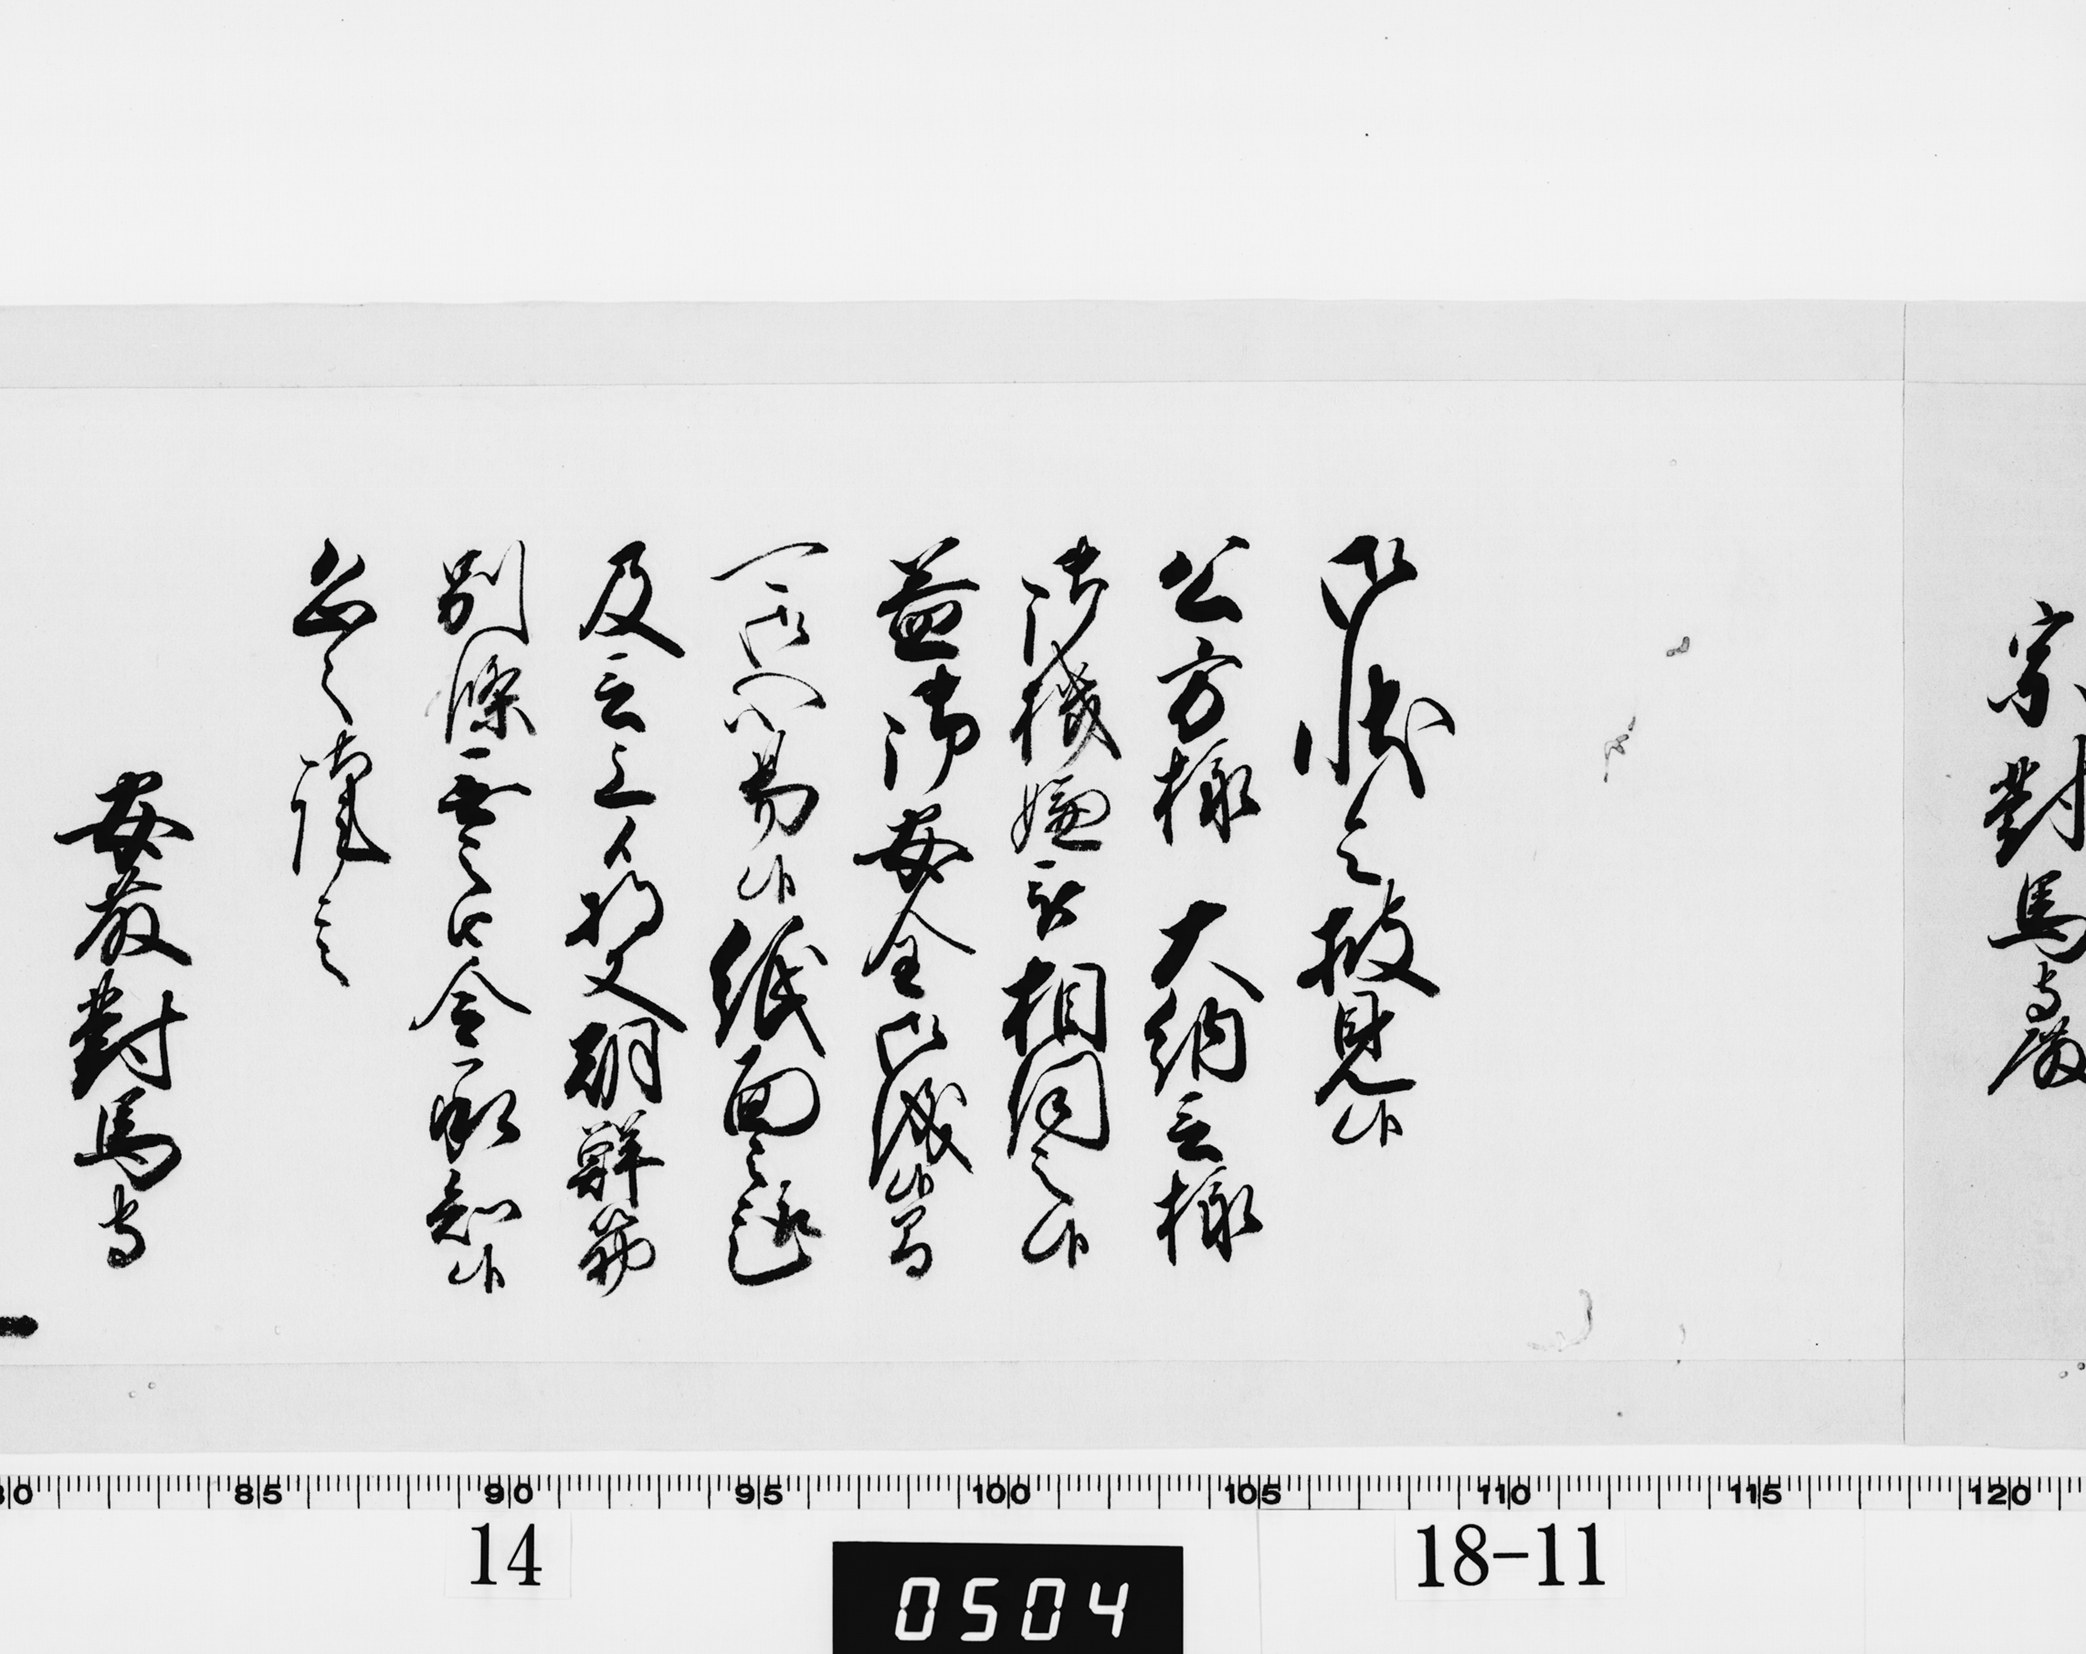 宗對馬守殿
御状令披見候
公方様 大納言様
御機嫌被相伺之候
益御安全御儀候間
可御心易候紙面之趣
及言上候将又朝鮮筋
別條無之旨令承知候
恐々謹言
安藤對馬守
80 85 90 95 100 105 110 115 120
14
18-11
0504